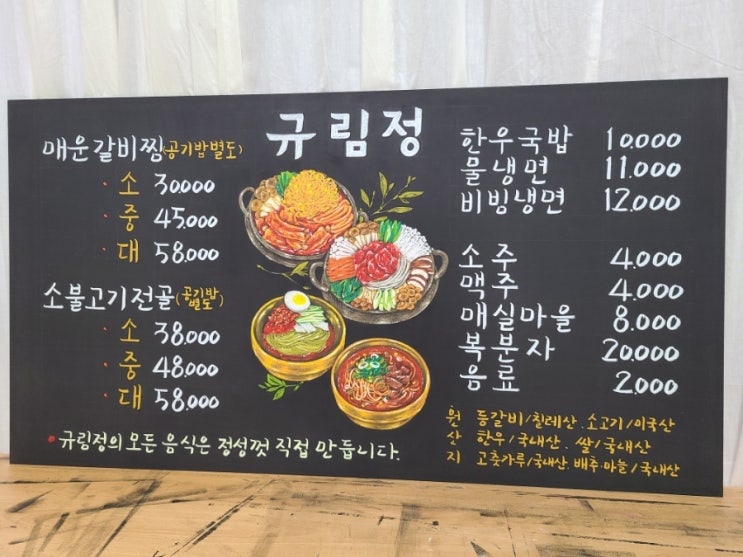 규림정
매운갈비찜(공기밥별도)
· 소 30.000
· 중 45.000
· 대 58.000
소불고기전골(공기밥별도)
· 소 38.000
· 중 48.000
· 대 58.000
규림정의 모든 음식은 정성껏 직접 만듭니다.
한우국밥 10.000
물냉면 11.000
비빔냉면 12.000
소주 4.000
맥주 4.000
매실마을 8.000
복분자 20.000
음료 2.000
원 등갈비/칠레산. 소고기/미국산
산 한우/국내산. 쌀/국내산
지 고춧가루/국내산. 배추.마늘/국내산